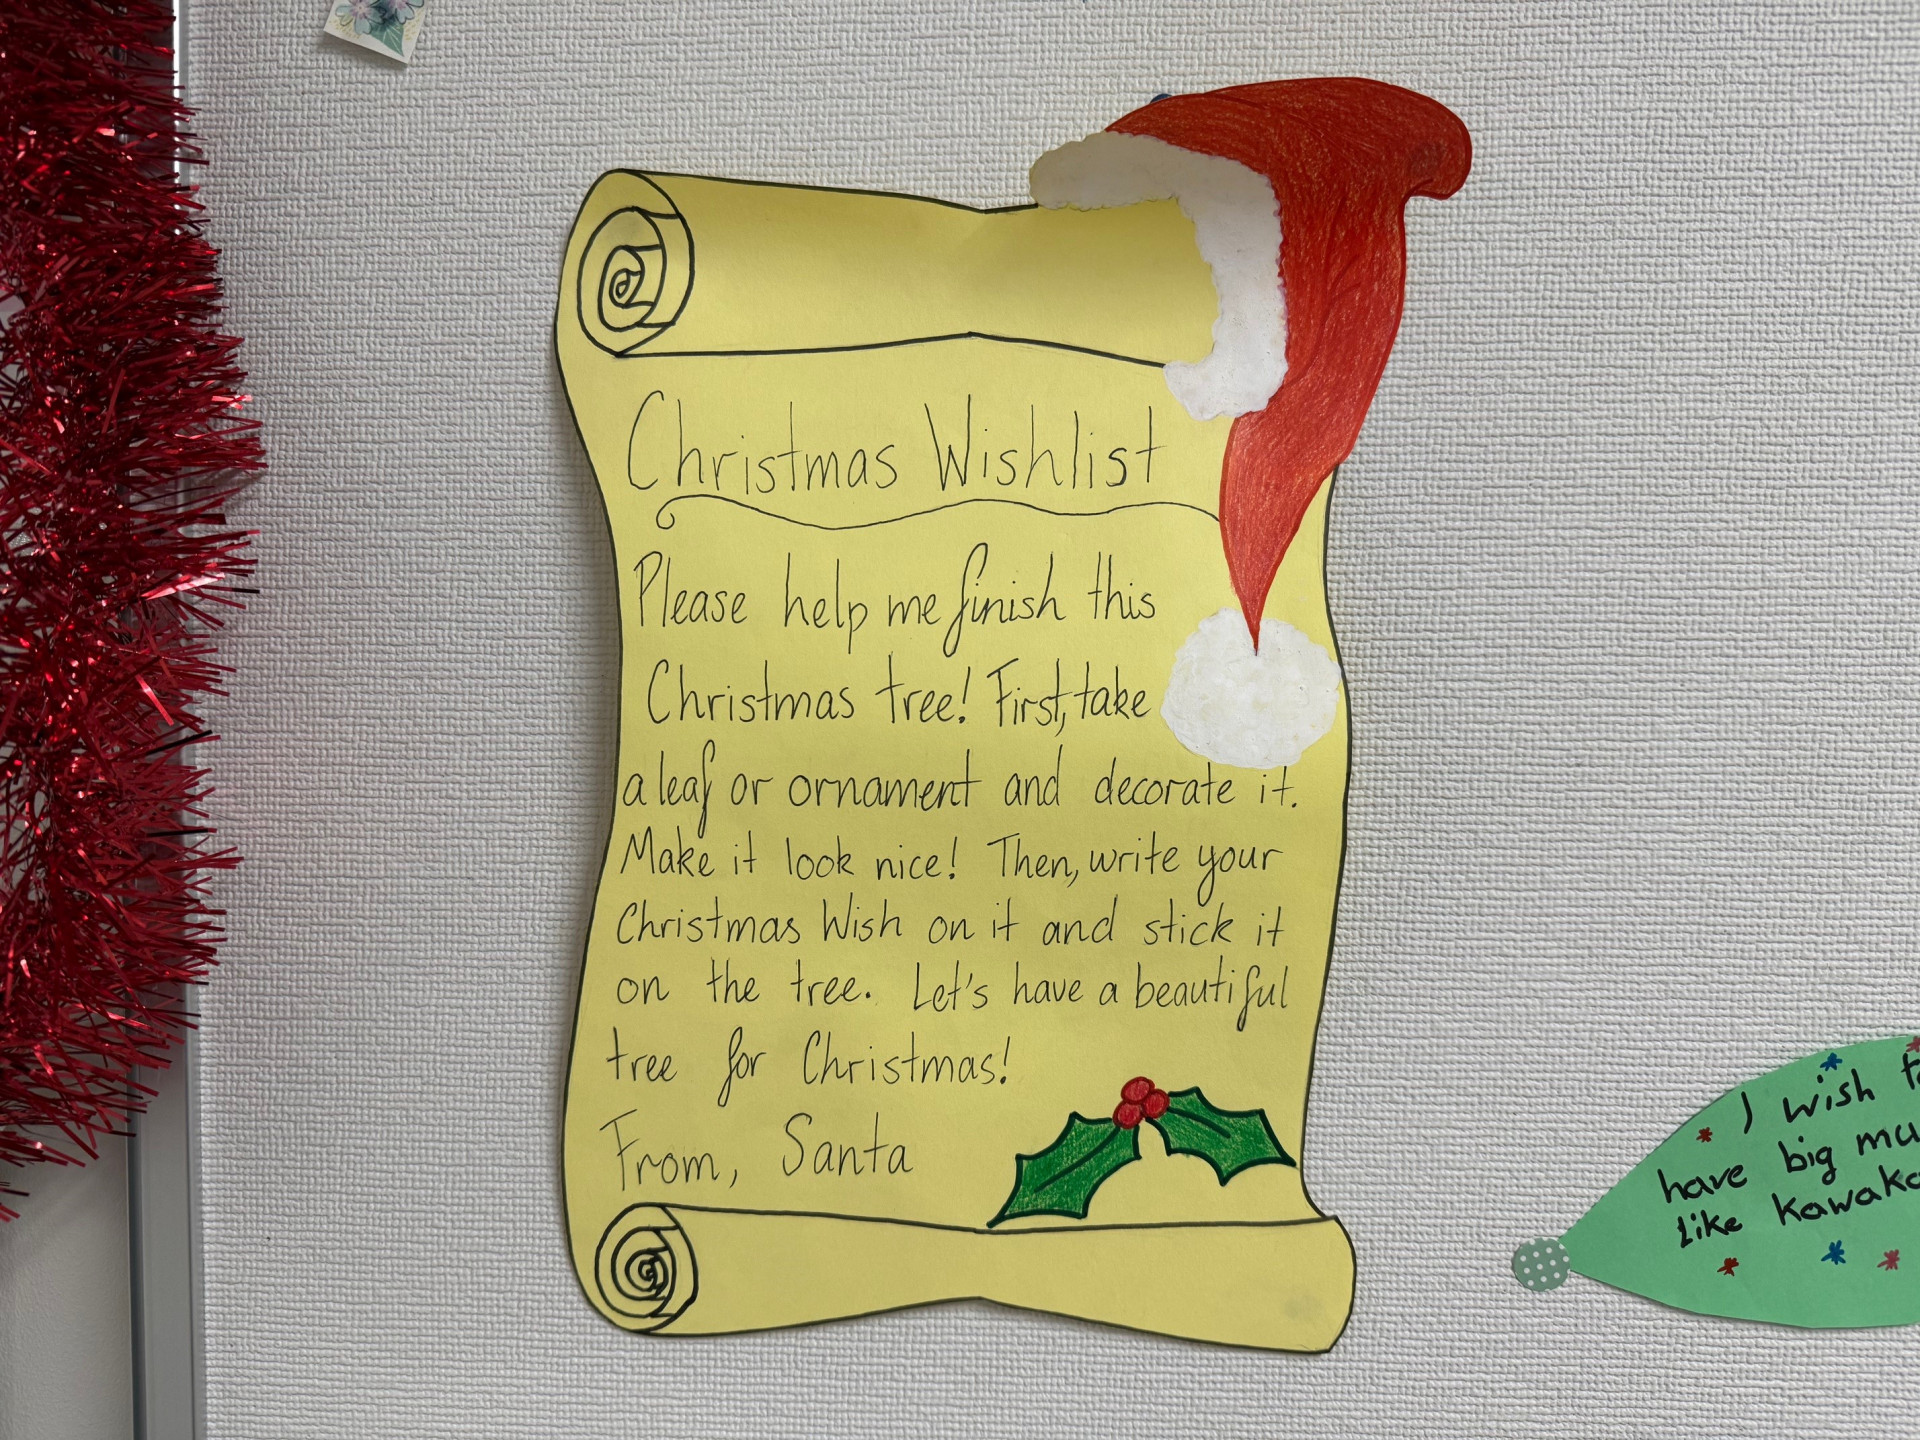 Christmas Wishlist
Please help me finish this
Christmas tree! First, take
a leaf or ornament and decorate it.
Make it look nice! Then, write your
Christmas Wish on it and stick it
on the tree. Let's have a beautiful
tree for Christmas!
From, Santa
I wish
have big
like